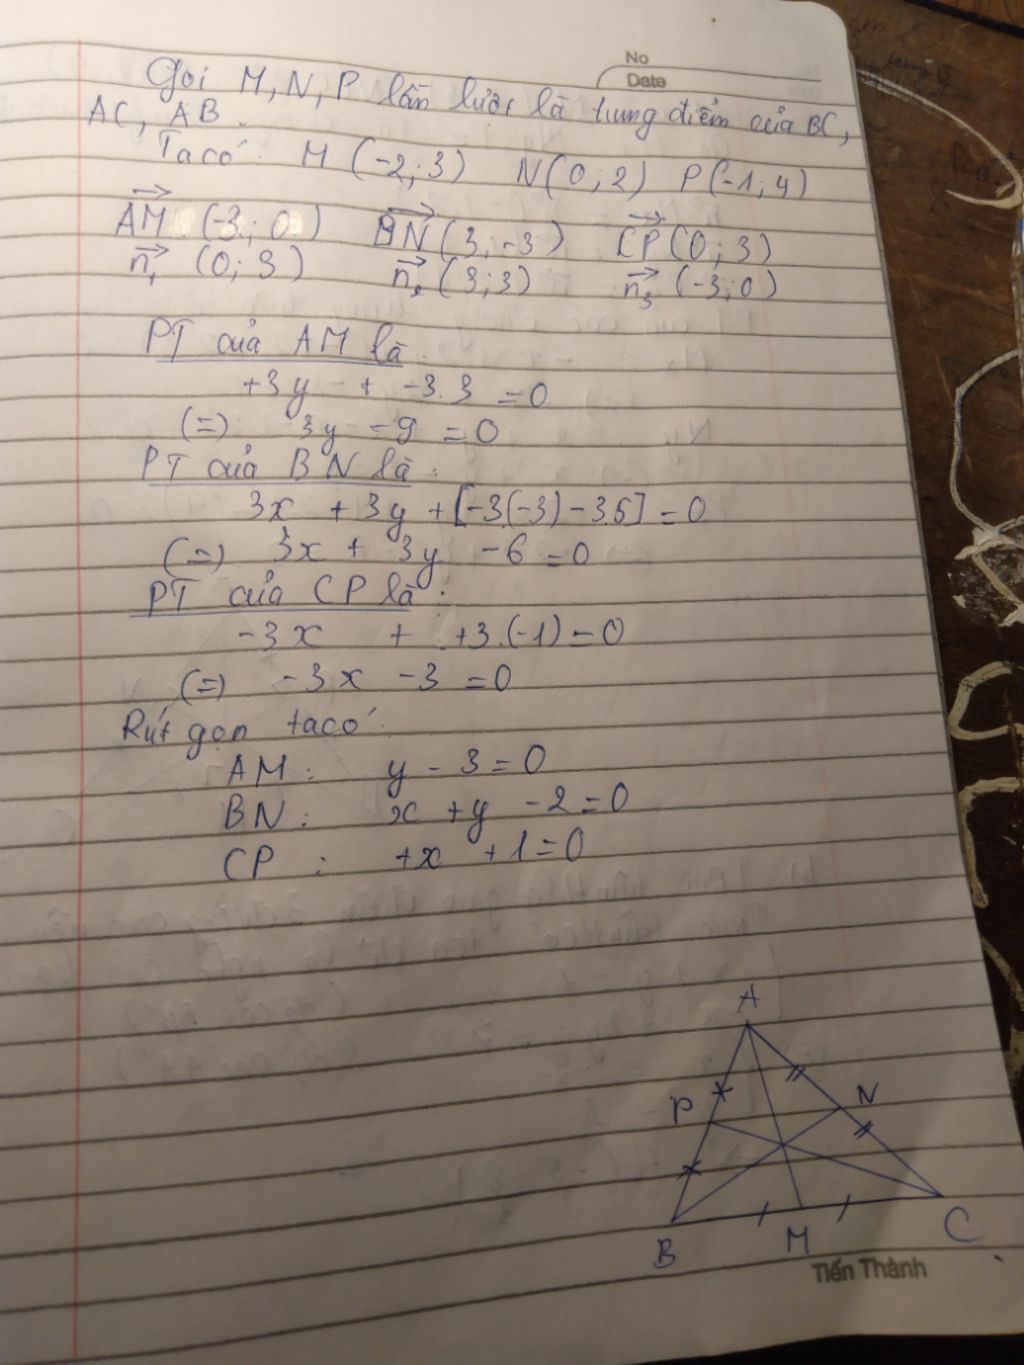 No
Date
Gọi M, N, P lần lượt là trung điểm của BC,
AC, AB.
Ta có: M (-2; 3) N(0; 2) P(-1; 4)
AM (-3; 0) BN (3; -3) CP (0; 3)
n₁ (0; 3) n₂ (3; 3) n₃ (-3; 0)
PT của AM là:
+3y + -3.3 = 0
(=) 3y - 9 = 0
PT của BN là:
3x + 3y + [-3(-3) - 3.5] = 0
(=) 3x + 3y - 6 = 0
PT của CP là:
-3x + +3.(-1) = 0
(=) -3x - 3 = 0
Rút gọn ta có:
AM: y - 3 = 0
BN: x + y - 2 = 0
CP: +x + 1 = 0
A
P N
B M C
Tiến Thành